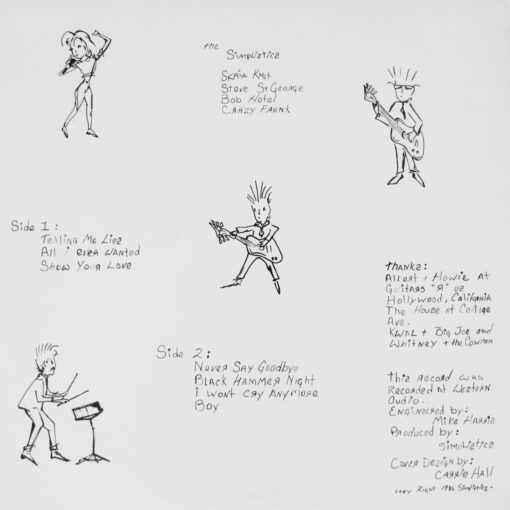 the
Simplistics
Steve St George
Bob Hotel
Crazy Frank
Side 1:
Telling Me Lies
All i ever wanted
Show Your Love
Side 2:
Never Say Goodbye
Black Hammer Night
i wont cry Anymore
Boy
thanks:
Albert + Howie at
Guitars "R" us
Hollywood, California
The House at College
Ave.
KWAL + Big Joe and
Whitney + the Cowman
this record was
Recorded at Western
Audio..
Engineered by:
Mike Harris
Produced by:
Simplistics
Cover Design by:
CARRIE HALL
Copy Right 1986 Simplistics.